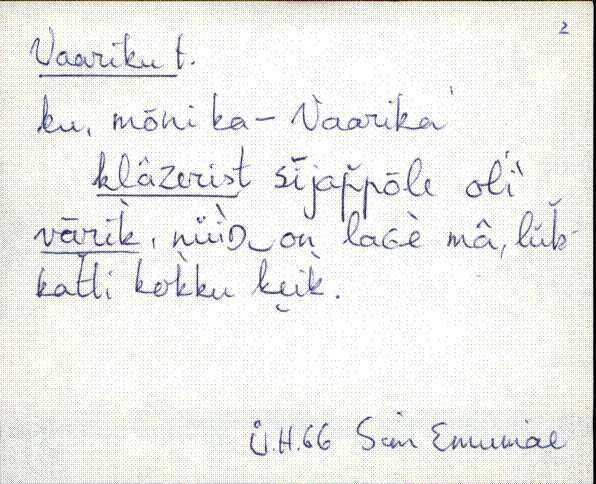 2
Vaariku t.
ku, mõni ka – Vaarika
klâzerist sĭjap̆pōle oĺi
vārik̀, nüüD on laGè mâ, lük̆-
kat̆ti kok̀ku kẹik̀.
Ü.H.66 Emumäe